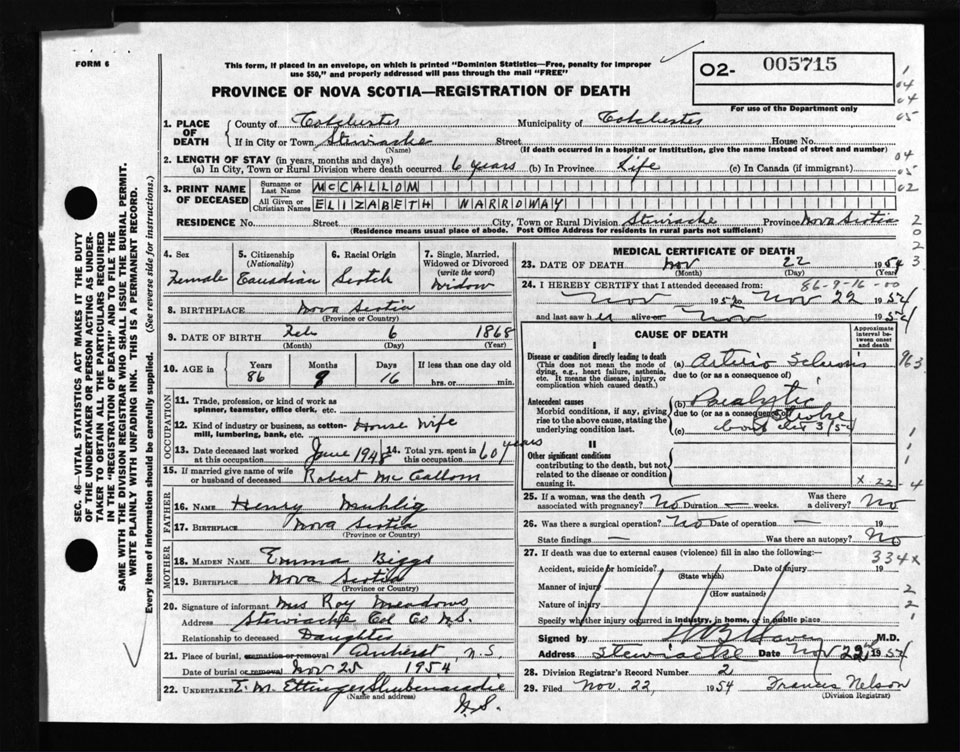 FORM 6
This form, if placed in an envelope, on which is printed "Dominion Statistics—Free, penalty for improper
use $50," and properly addressed will pass through the mail "FREE"
O2- 005715
For use of the Department only
PROVINCE OF NOVA SCOTIA—REGISTRATION OF DEATH
1. PLACE OF DEATH
County of Colchester Municipality of Colchester
If in City or Town Stewiacke Street House No.
(Name) (If death occurred in a hospital or institution, give the name instead of street and number)
2. LENGTH OF STAY (in years, months and days)
(a) In City, Town or Rural Division where death occurred 6 years (b) in Province Life (c) In Canada (if immigrant)
3. PRINT NAME OF DECEASED
Surname or Last Name McCALLOM
All Given or Christian Names ELIZABETH NARROWAY
RESIDENCE No. Street City, Town or Rural Division Stewiacke Province Nova Scotia
(Residence means usual place of abode. Post Office Address for residents in rural parts not sufficient)
4. Sex Female
5. Citizenship (Nationality) Canadian
6. Racial Origin Scotch
7. Single, Married, Widowed or Divorced (write the word) Widow
8. BIRTHPLACE Nova Scotia
(Province or Country)
9. DATE OF BIRTH Feb 6 1868
(Month) (Day) (Year)
10. AGE in Years Months Days If less than one day old
86 9 16 hrs. or min.
OCCUPATION
11. Trade, profession, or kind of work as
spinner, teamster, office clerk, etc.
12. Kind of industry or business, as cotton-
mill, lumbering, bank, etc. House Wife
13. Date deceased last worked at this occupation June 1948
14. Total yrs. spent in this occupation 60 years
15. If married give name of wife
or husband of deceased Robert McCallom
FATHER
16. NAME Henry Muhlig
17. BIRTHPLACE Nova Scotia
(Province or Country)
MOTHER
18. MAIDEN NAME Emma Biggs
19. BIRTHPLACE Nova Scotia
(Province or Country)
20. Signature of informant Mrs Roy Meadows
Address Stewiacke Col Co N.S.
Relationship to deceased Daughter
21. Place of burial, cremation or removal Amherst N.S.
Date of burial or removal Nov 25 1954
22. UNDERTAKER E. M. Ettinger Shubenacadie
(Name and address) N.S.
MEDICAL CERTIFICATE OF DEATH
23. DATE OF DEATH Nov 22 1954
(Month) (Day) (Year)
86-9-16-00
24. I HEREBY CERTIFY that I attended deceased from:
Nov 195 to Nov 22 1954
and last saw her alive Nov 1954
CAUSE OF DEATH
Approximate interval between onset and death
I
Disease or condition directly leading to death
(This does not mean the mode of dying, e.g., heart failure, asthenia, etc. It means the disease, injury, or complication which caused death.)
(a) Arterio Sclerosis
due to (or as a consequence of)
Antecedent causes
Morbid conditions, if any, giving rise to the above cause, stating the underlying condition last.
(b) Paralytic
due to (or as a consequence of) Stroke
(c) about 3/54
II
Other significant conditions
contributing to the death, but not related to the disease or condition causing it.
x-22-4
25. If a woman, was the death associated with pregnancy? No Duration — weeks. Was there a delivery? No
26. Was there a surgical operation? No Date of operation — 19
State findings — Was there an autopsy? No
27. If death was due to external causes (violence) fill in also the following:—
334x
Accident, suicide or homicide? Date of injury 19
(State which)
Manner of injury
(How sustained)
Nature of injury
Specify whether injury occurred in industry, in home, or in public place
Signed by M.D.
Address Stewiacke Date Nov 22 1954
28. Division Registrar's Record Number 2
29. Filed Nov. 22, 1954 Frances Nelson
(Division Registrar)
SEC. 46—VITAL STATISTICS ACT MAKES IT THE DUTY
OF THE UNDERTAKER OR PERSON ACTING AS UNDER-
TAKER TO OBTAIN ALL THE PARTICULARS REQUIRED
IN THE "REGISTRATION OF DEATH" AND TO FILE THE
SAME WITH THE DIVISION REGISTRAR WHO SHALL ISSUE THE BURIAL PERMIT.
WRITE PLAINLY WITH UNFADING INK. THIS IS A PERMANENT RECORD.
Every item of information should be carefully supplied. (See reverse side for instructions.)